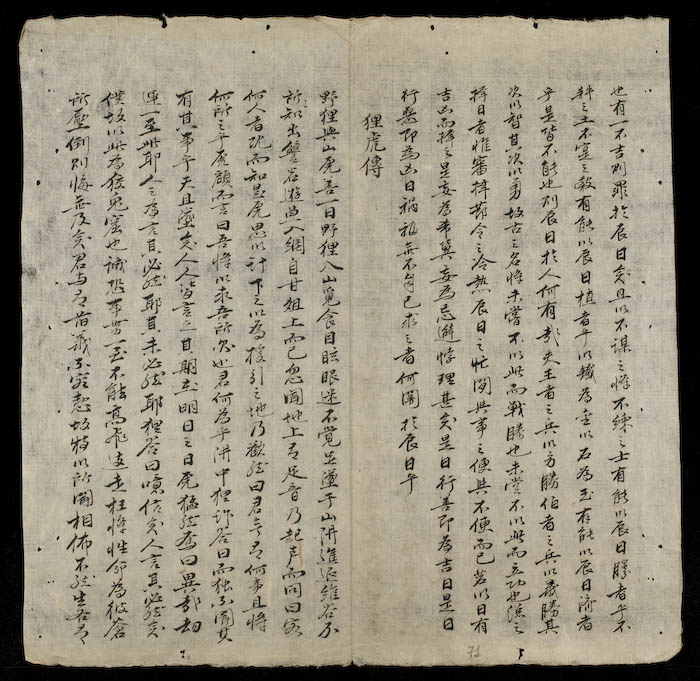 也有一不吉則罪於辰日矣且以不謀之將不練之士有能以辰日勝者乎不
耕之土不之穀有能以辰日植者乎以鐵為金以石為玉有能以辰日濟者
乎是皆不能也則辰日於人何有哉夫王者之兵以方勝伯者之兵以義勝其
次以智其次以勇故古之名將未嘗不以此而戰勝也未嘗不以此而立功也總之
擇日者惟審擇節令之冷熱辰日之忙閒與事之便與不便而已若以日有
吉凶而擇之是妄為希冀妄為忌避悖理甚矣是日行善即為吉日是日
行惡即為凶日禍福無不自己求之者何関於辰日乎
狸虎傳
野狸與山虎善一日野狸入山覓食目眩眼迷不覺足于山阱進退維谷不
所知出譬若遊魚入網自甘俎上而已忽聞地上有足音乃起声而問曰客
何人者既而知是虎思以計下之以為援引之地乃歡然曰君亦有何事且將
何所之乎虎顧而言曰吾將以求吾所欲也君何為乎阱中狸詐答曰而独不聞其
有其事乎天且墜矣人人皆言之且期在明日之日虎猛然驚曰異哉劫
運一至此耶人之為言其必然耶其未必然耶狸答曰噫信矣人言其必然矣
僕故以此為狡兔窟也誠恐事勢一至不能高飛遠走枉將性命為彼蒼
所壓倒則悔無及矣君与有旧義不容恝故特以所聞相佈不然生
71